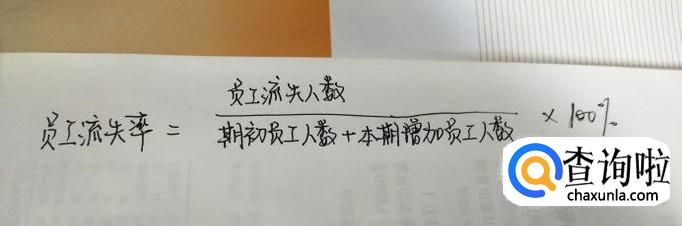 员工流失率 = 员工流失人数
期初员工人数+本期增加员工人数 × 100%
查询啦
chaxunla.com